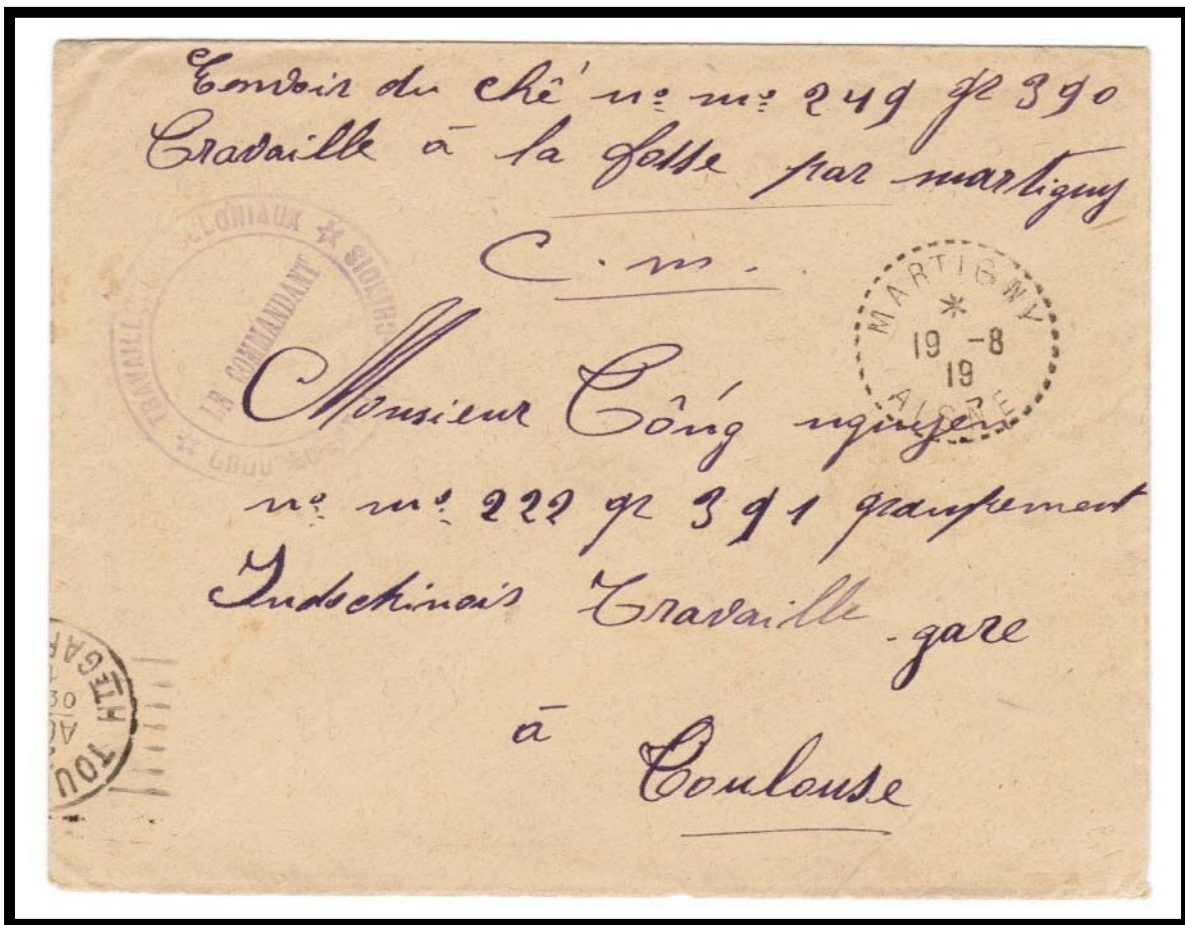 Envoir du chê nº mº 249 gr 390
Travaille à la fosse par martigny
C. m.
TRAVAILLEURS COLONIAUX ☆ INDOCHINOIS ☆
LE COMMANDANT
MARTIGNY
*
19 -8
19
AISNE
Monsieur Công nguyên
nº mº 222 gr 391 groupement
Indochinois Travaille gare
à
Toulouse
TOU
HTE GAR